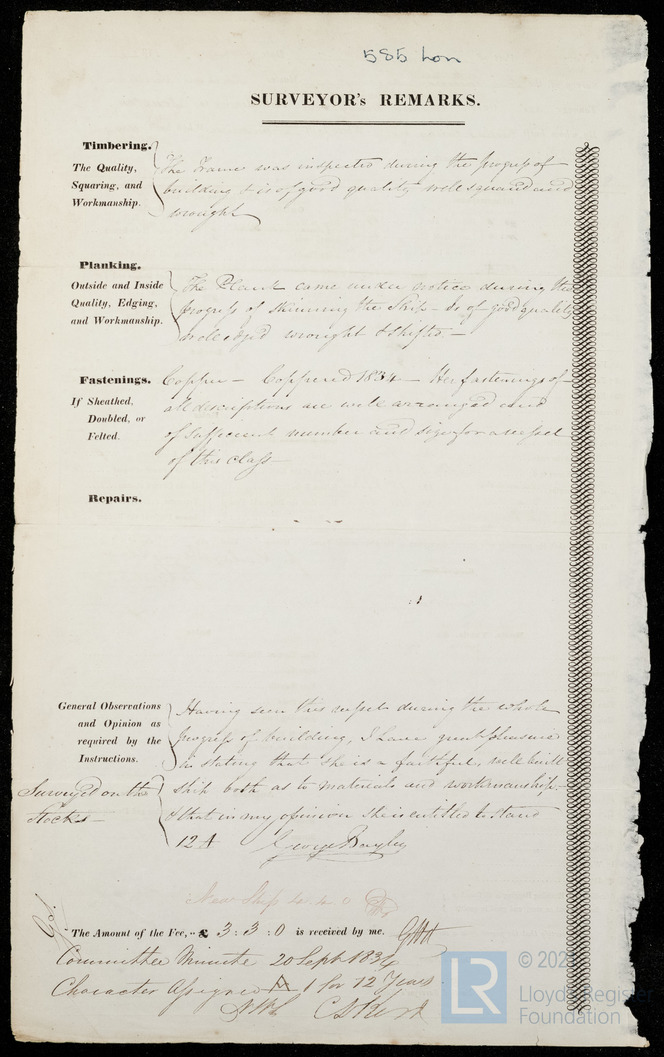 585 Lon
SURVEYOR's REMARKS.
Timbering.
The Quality,
Squaring, and
Workmanship.
The Frame was inspected during the progress of
building & is of good quality well squared and
wrought
Planking.
Outside and Inside
Quality, Edging,
and Workmanship.
The Plank came under notice during the
progress of skinning the Ship – is of good quality
well edged wrought & shifted. –
Fastenings.
If Sheathed,
Doubled, or
Felted.
Copper – Coppered 1834 – Her fastenings of
all descriptions are well arranged and
of sufficient number and size for a vessel
of this class
Repairs.
General Observations
and Opinion as
required by the
Instructions.
Surveyed on the
Stocks
Having seen this vessel during the whole
progress of building, I have great pleasure
in stating that she is a faithful, well built
ship both as to materials and workmanship –
& that in my opinion she is entitled to stand
12 A George Bayley
New Ship
The Amount of the Fee, £ 3 : 3 : 0 is received by me.
Committee Minute 20 Sept 1834
Character Assigned A 1 for 12 Years
LR
Lloyd's Register
Foundation